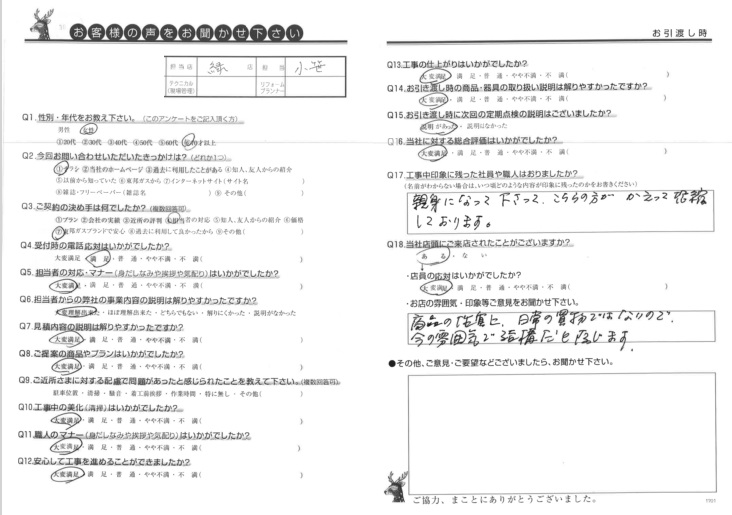 お客様の声をお聞かせ下さい
担当店 緑 店 担当 小笹
テクニカル(現場管理) リフォームプランナー
Q1.性別・年代をお教え下さい。(このアンケートをご記入頂く方)
男性 女性
①20代 ②30代 ③40代 ④50代 ⑤60代 ⑥70才以上
Q2.今回お問い合わせいただいたきっかけは?(どれか1つ)
①チラシ ②当社のホームページ ③過去に利用したことがある ④知人、友人からの紹介
⑤以前から知っていた ⑥東邦ガスから ⑦インターネットサイト(サイト名 )
⑧雑誌・フリーペーパー(雑誌名 ) ⑨その他( )
Q3.ご契約の決め手は何でしたか?(複数回答可)
①プラン ②会社の実績 ③近所の評判 ④担当者の対応 ⑤知人、友人からの紹介 ⑥価格
⑦東邦ガスブランドで安心 ⑧過去に利用して良かったから ⑨その他( )
Q4.受付時の電話応対はいかがでしたか?
大変満足・満 足・普 通・やや不満・不 満( )
Q5.担当者の対応・マナー(身だしなみや挨拶や気配り)はいかがでしたか?
大変満足・満 足・普 通・やや不満・不 満( )
Q6.担当者からの弊社の事業内容の説明は解りやすかったですか?
大変理解出来た・ほぼ理解出来た・どちらでもない・解りにくかった・説明がなかった
Q7.見積内容の説明は解りやすかったですか?
大変満足・満 足・普 通・やや不満・不 満( )
Q8.ご提案の商品やプランはいかがでしたか?
大変満足・満 足・普 通・やや不満・不 満( )
Q9.ご近所さまに対する配慮で問題があったと感じられたことを教えて下さい。(複数回答可)
駐車位置・清掃・騒音・着工前挨拶・作業時間・特に無し・その他( )
Q10.工事中の美化(清掃)はいかがでしたか?
大変満足・満 足・普 通・やや不満・不 満( )
Q11.職人のマナー(身だしなみや挨拶や気配り)はいかがでしたか?
大変満足・満 足・普 通・やや不満・不 満( )
Q12.安心して工事を進めることができましたか?
大変満足・満 足・普 通・やや不満・不 満( )
お引渡し時
Q13.工事の仕上がりはいかがでしたか?
大変満足・満 足・普 通・やや不満・不 満( )
Q14.お引き渡し時の商品・器具の取り扱い説明は解りやすかったですか?
大変満足・満 足・普 通・やや不満・不 満( )
Q15.お引き渡し時に次回の定期点検の説明はございましたか?
説明があった・説明はなかった
Q16.当社に対する総合評価はいかがでしたか?
大変満足・満 足・普 通・やや不満・不 満( )
Q17.工事中印象に残った社員や職人はおりましたか?
(名前がわからない場合は、いつ頃どのような内容が印象に残ったのかをお書きください)
親身になって下さって、こちらの方がかえって恐縮
しております。
Q18.当社店頭にご来店されたことがございますか?
ある・ない
・店員の応対はいかがでしたか?
大変満足・満 足・普 通・やや不満・不 満( )
・お店の雰囲気・印象等ご意見をお聞かせ下さい。
商品の性質上、日常の買物ではないので、
今の雰囲気で結構だと感じます。
●その他、ご意見・ご要望などございましたら、お聞かせ下さい。
ご協力、まことにありがとうございました。